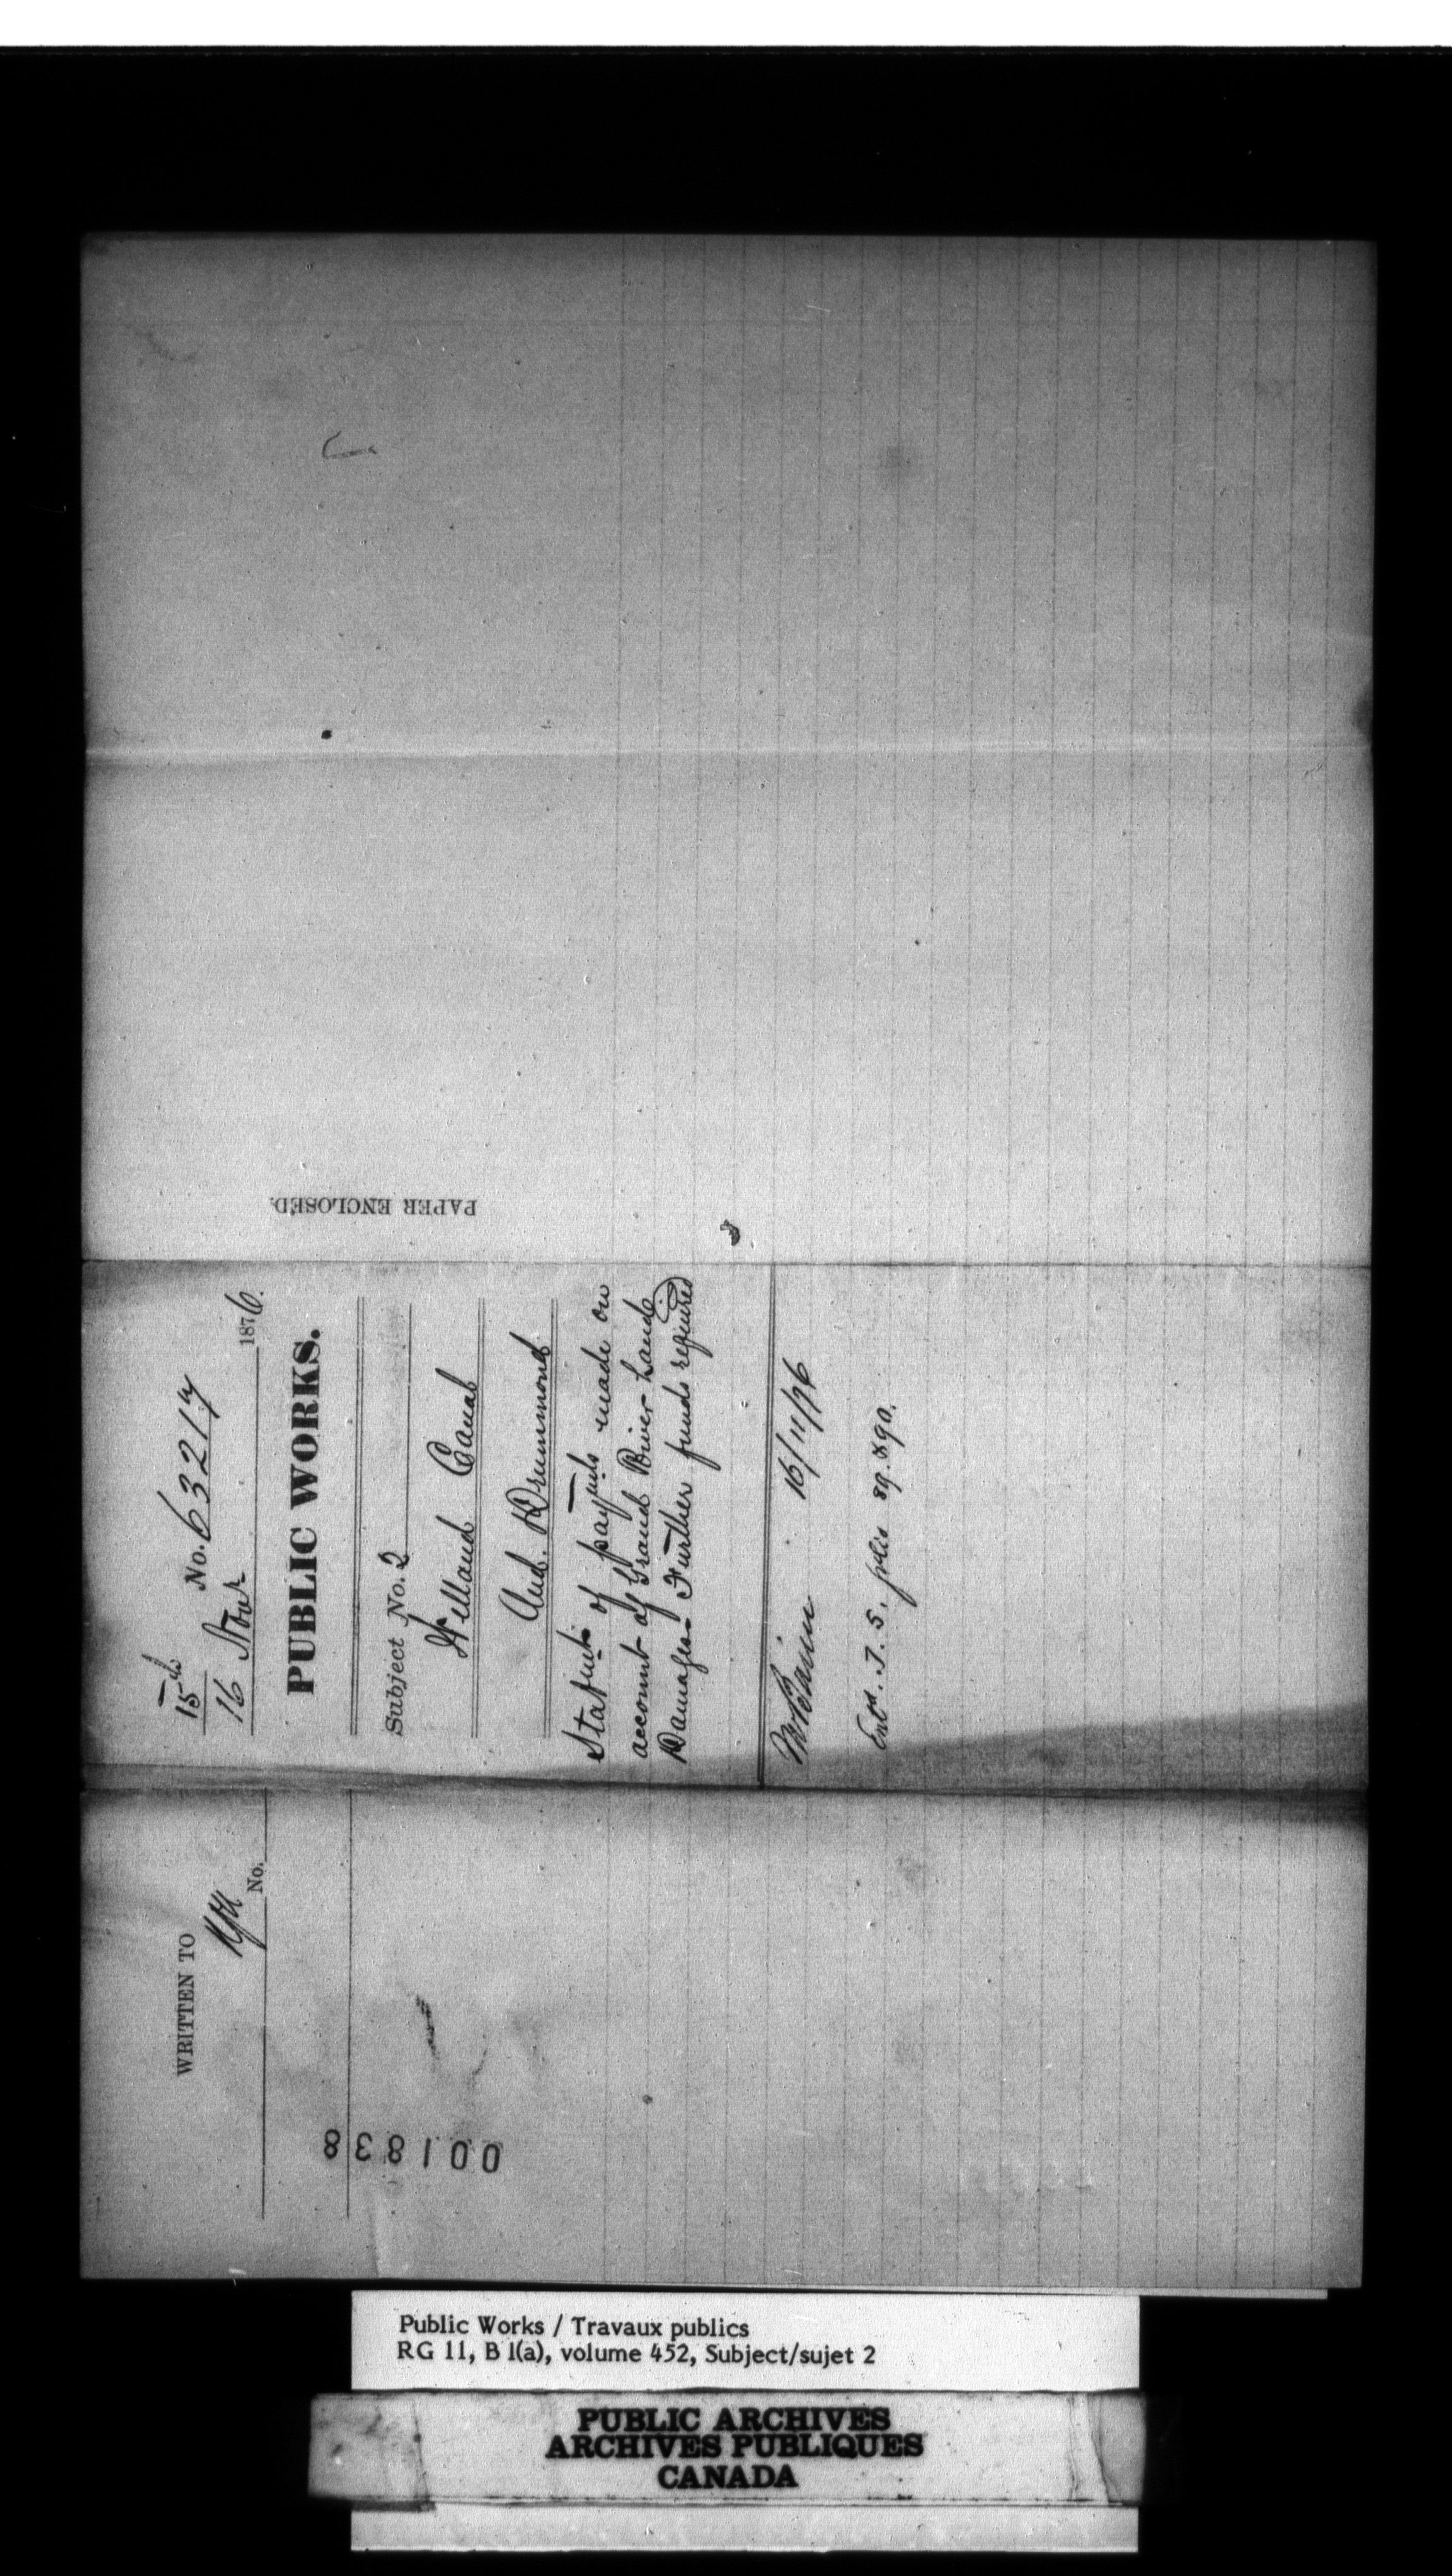 15th
No. 63217
16 Novr 1876.
PUBLIC WORKS.
Subject No. 2
Welland Canal
And. Drummond
Statmt of paymts made on
account of Grand River Land
Damages Further funds required
16/11/76
Entd. J. S. folio 89. & 90.
PAPER ENCLOSED.
WRITTEN TO
No.
001838
Public Works / Travaux publics
RG 11, B 1(a), volume 452, Subject/sujet 2
PUBLIC ARCHIVES
ARCHIVES PUBLIQUES
CANADA